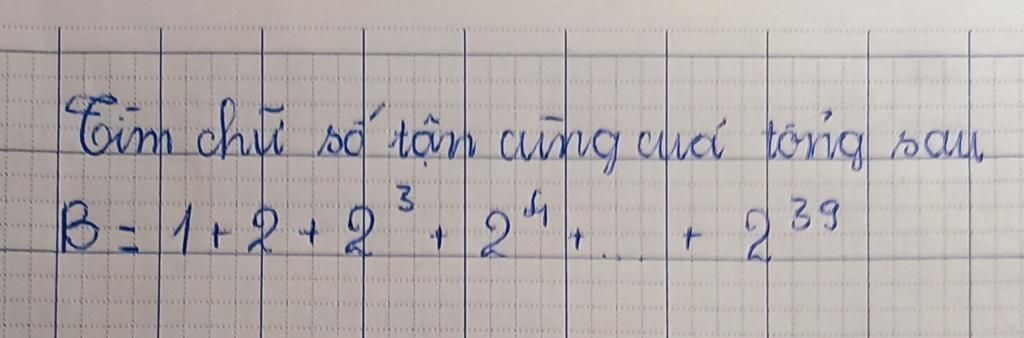 Tìm chữ số tận cùng của tổng sau
B = 1 + 2 + 2³ + 2⁴ + .... + 2³⁹